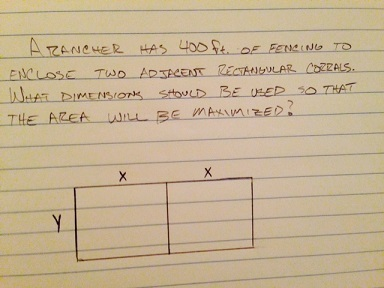 A RANCHER HAS 400 ft. OF FENCING TO
ENCLOSE TWO ADJACENT RECTANGULAR CORRALS.
WHAT DIMENSIONS SHOULD BE USED SO THAT
THE AREA WILL BE MAXIMIZED?
x x
y